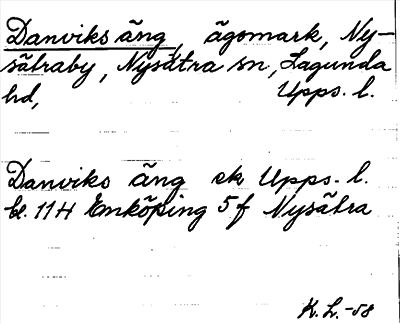 Danviks äng, ägomark, Ny-
sätraby, Nysätra sn, Lagunda
hd, Upps. l.
Danviks äng ek Upps. l.
bl. 114 Enköping 5 f Nysätra
K. L. -58